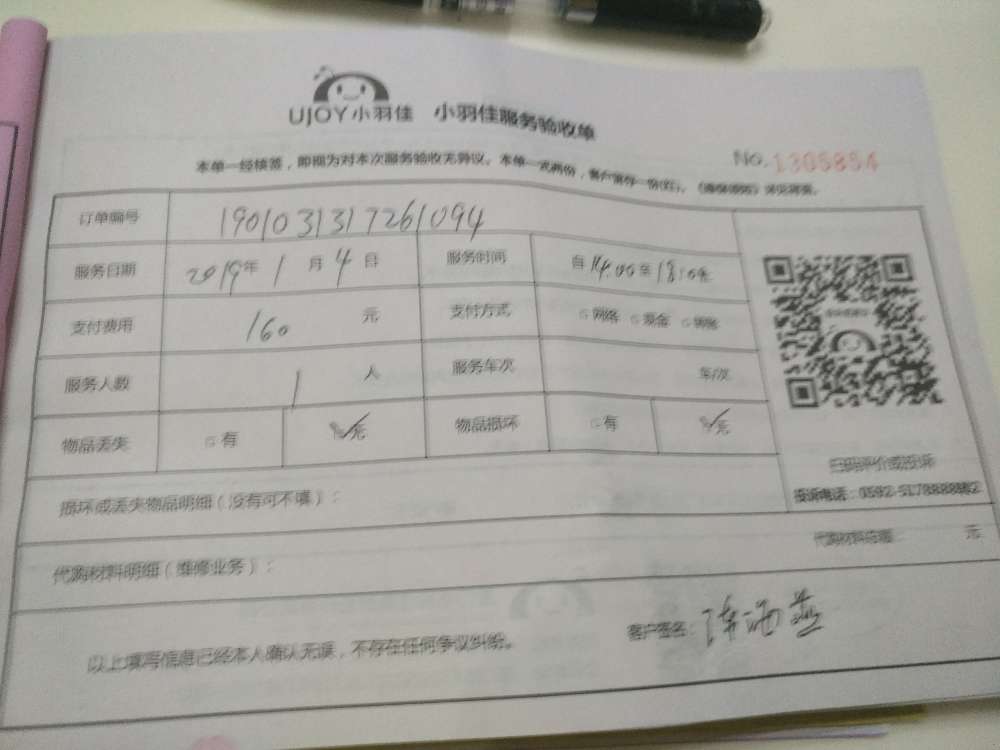 UJOY小羽佳 小羽佳服务验收单
本单一经核签，即视为对本次服务验收无异议。本单一式两份，客户留存一份(红)。
No.1305854
订单编号 1901031317261094
服务日期 2019年1月4日 服务时间 自14:00至18:00
支付费用 160 元 支付方式 网络 现金
服务人数 1 人 服务车次 车次
物品丢失 有 无 物品损坏 有 无
扫码评价或投诉
投诉电话：0592-5178888
损坏或丢失物品明细（没有可不填）：
代购材料明细（维修业务）： 代购材料总额： 元
以上填写信息已经本人确认无误，不存在任何争议纠纷。 客户签名：